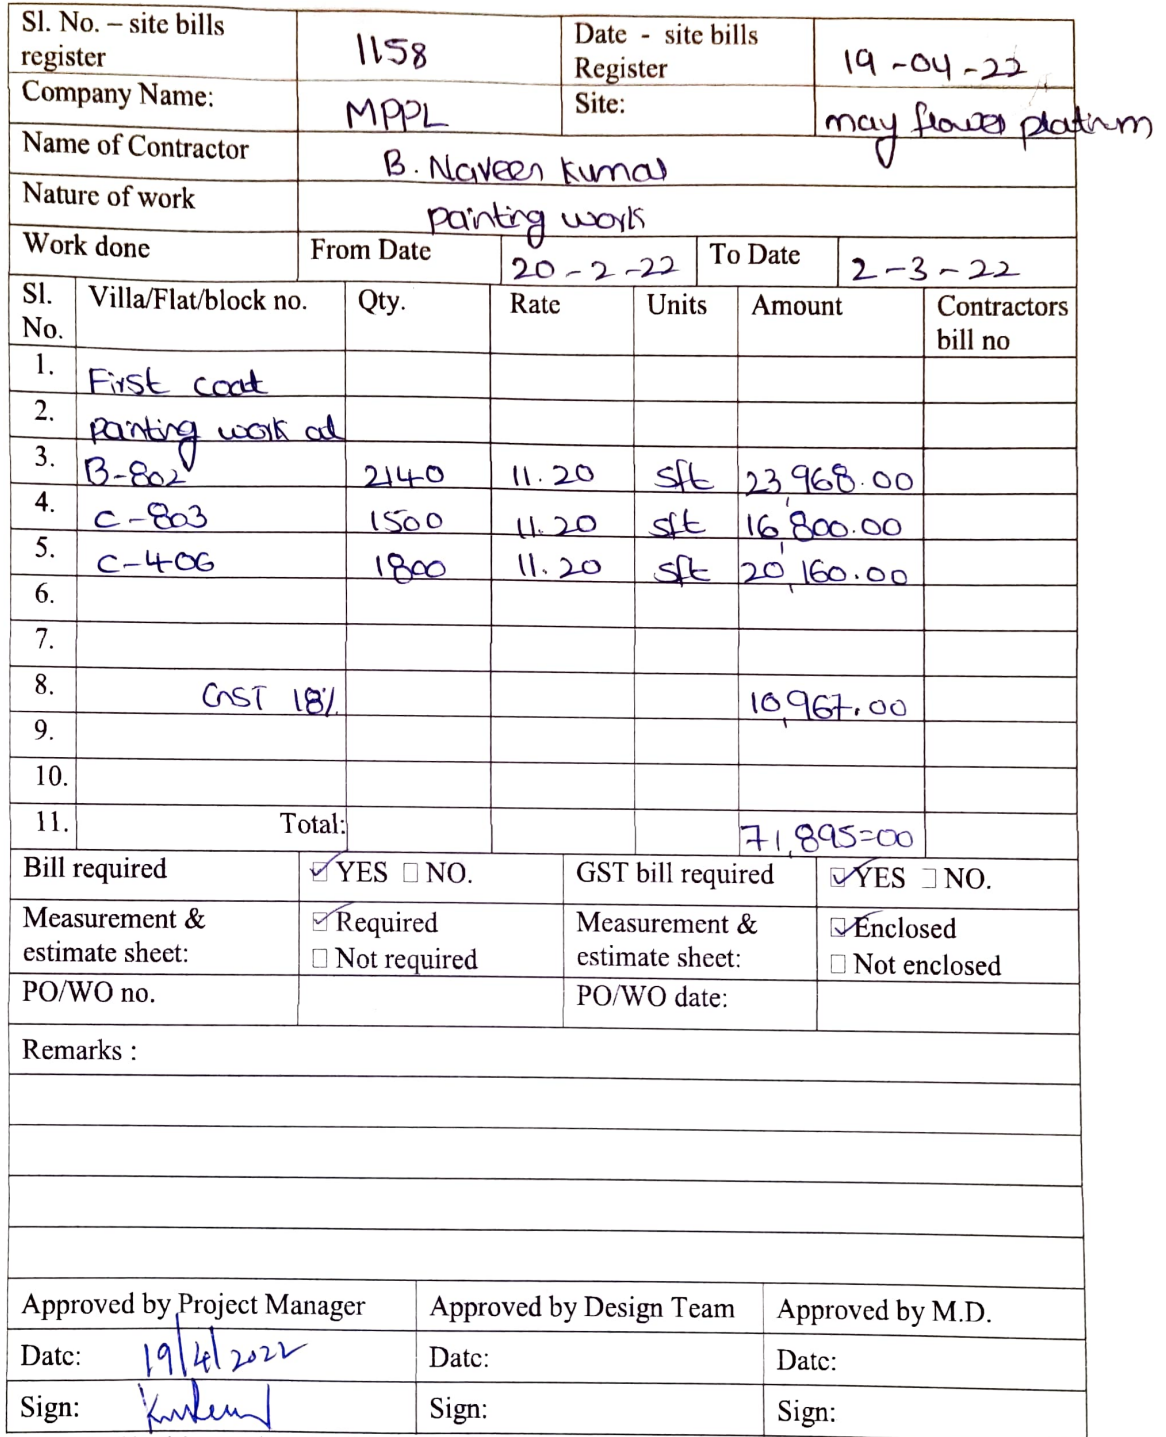 Sl. No. – site bills register 1158 Date - site bills Register 19-04-22
Company Name: MPPL Site: may flower platinum
Name of Contractor B. Naveen Kumar
Nature of work painting work
Work done From Date 20-2-22 To Date 2-3-22
Sl. No. Villa/Flat/block no. Qty. Rate Units Amount Contractors bill no
1. First coat
2. painting work at
3. B-802 2140 11.20 sft 23,968.00
4. C-803 1500 11.20 sft 16,800.00
5. C-406 1800 11.20 sft 20,160.00
6.
7.
8. GST 18% 10,967.00
9.
10.
11. Total: 71,895=00
Bill required ☑ YES ☐ NO. GST bill required ☑ YES ☐ NO.
Measurement & estimate sheet: ☑ Required ☐ Not required Measurement & estimate sheet: ☑ Enclosed ☐ Not enclosed
PO/WO no. PO/WO date:
Remarks :
Approved by Project Manager Approved by Design Team Approved by M.D.
Date: 19/4/2022 Date: Date:
Sign: Sign: Sign: